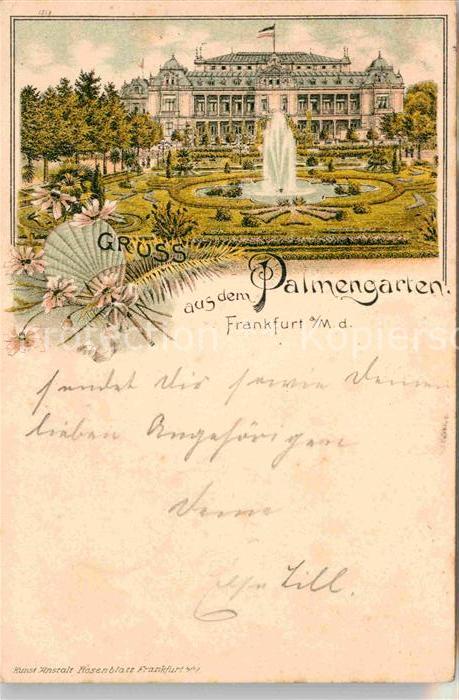 1259
GRUSS
aus dem Palmengarten!
Frankfurt a/M. d.
sendet Dir sowie Deinen
lieben Angehörigen
Deine
Else Lill.
Kunst Anstalt Rosenblatt Frankfurt a/M